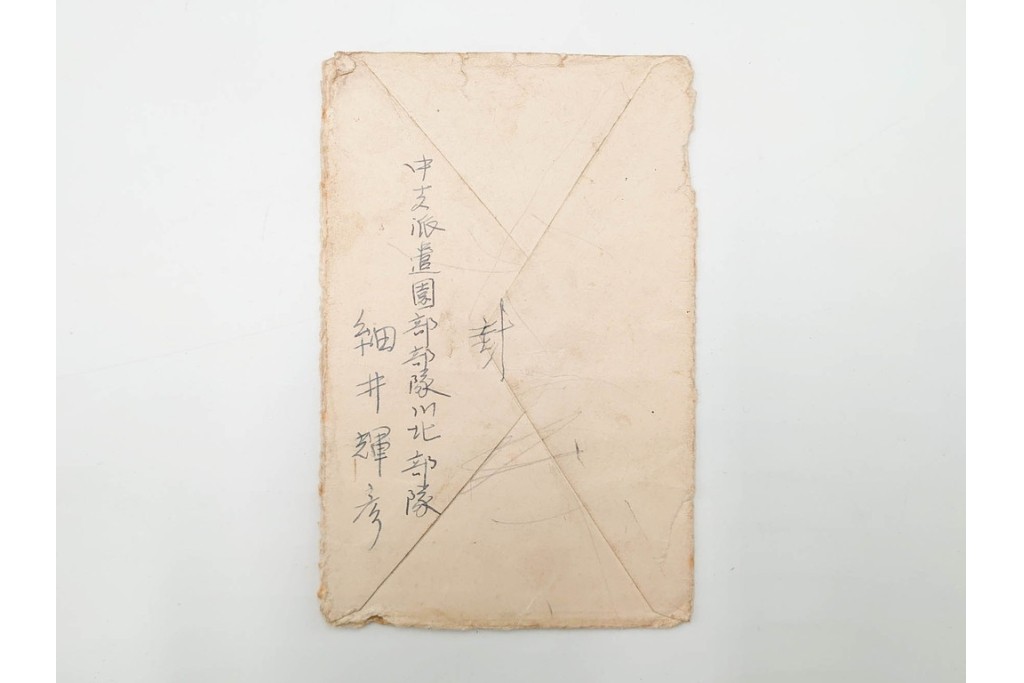 封
中支派遣園部部隊川北部隊
細井輝彦